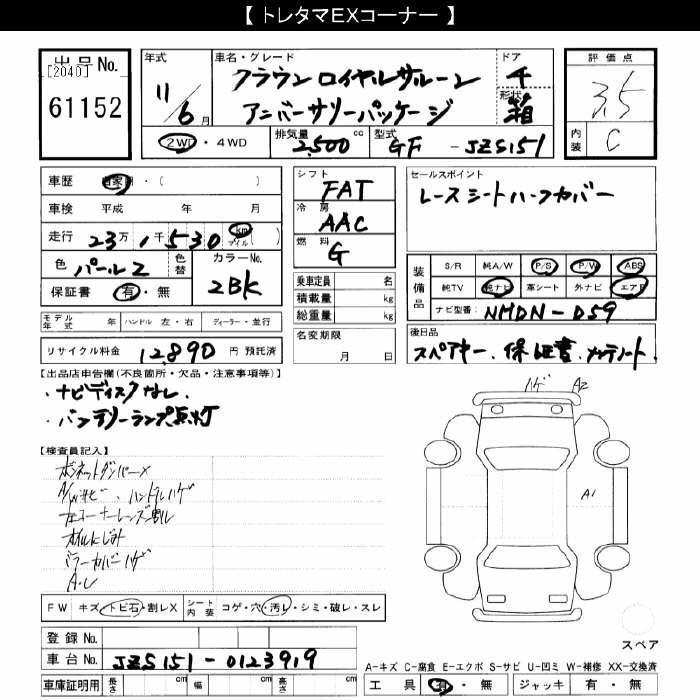 【 トレタマEXコーナー 】
出品 No. [2040] 61152
年式 11/6 月
車名・グレード クラウン ロイヤルサルーン
アニバーサリーパッケージ
ドア 4
形状 箱
2WD・4WD
排気量 2,500 cc
型式 GF - JZS151
評価点 3.5
内装 C
車歴 自家用・( )
車検 平成 年 月
走行 23万1千530 km マイル ( )
色 パール2
色替
カラーNo. 2BK
保証書 有・無
モデル年式 年 ハンドル 左・右 ディーラー・並行
リサイクル料金 12,890 円 預託済
シフト FAT
冷房 AAC
燃料 G
乗車定員 名
積載量 kg
総重量 kg
名変期限
月 日
セールスポイント
レースシートハーフカバー
装備品
S/R 純A/W P/S P/W ABS
純TV 純ナビ 革シート 外ナビ エアB
ナビ型番: NHDN-D59
後日品
スペアキー、保証書、メンテノート、
【出品店申告欄(不良箇所・欠品・注意事項等)】
・ナビディスクなし
・バッテリーランプ点灯
【検査員記入】
ボンネットダンパー×
A/Wサビ、ハンドルハゲ
左コーナーレンズ割レ
オイルにじみ
ミラーカバーハゲ
ハゲ A2
A1
FW キズ・トビ石・割レX
シート内装 コゲ・穴・汚レ・シミ・破レ・スレ
登録 No.
車台 No. JZS151-0123919
車庫証明用 長さ cm 幅 cm 高さ cm
スペア
A-キズ C-腐食 E-エクボ S-サビ U-凹ミ W-補修 XX-交換済
工具 有・無 ジャッキ 有・無